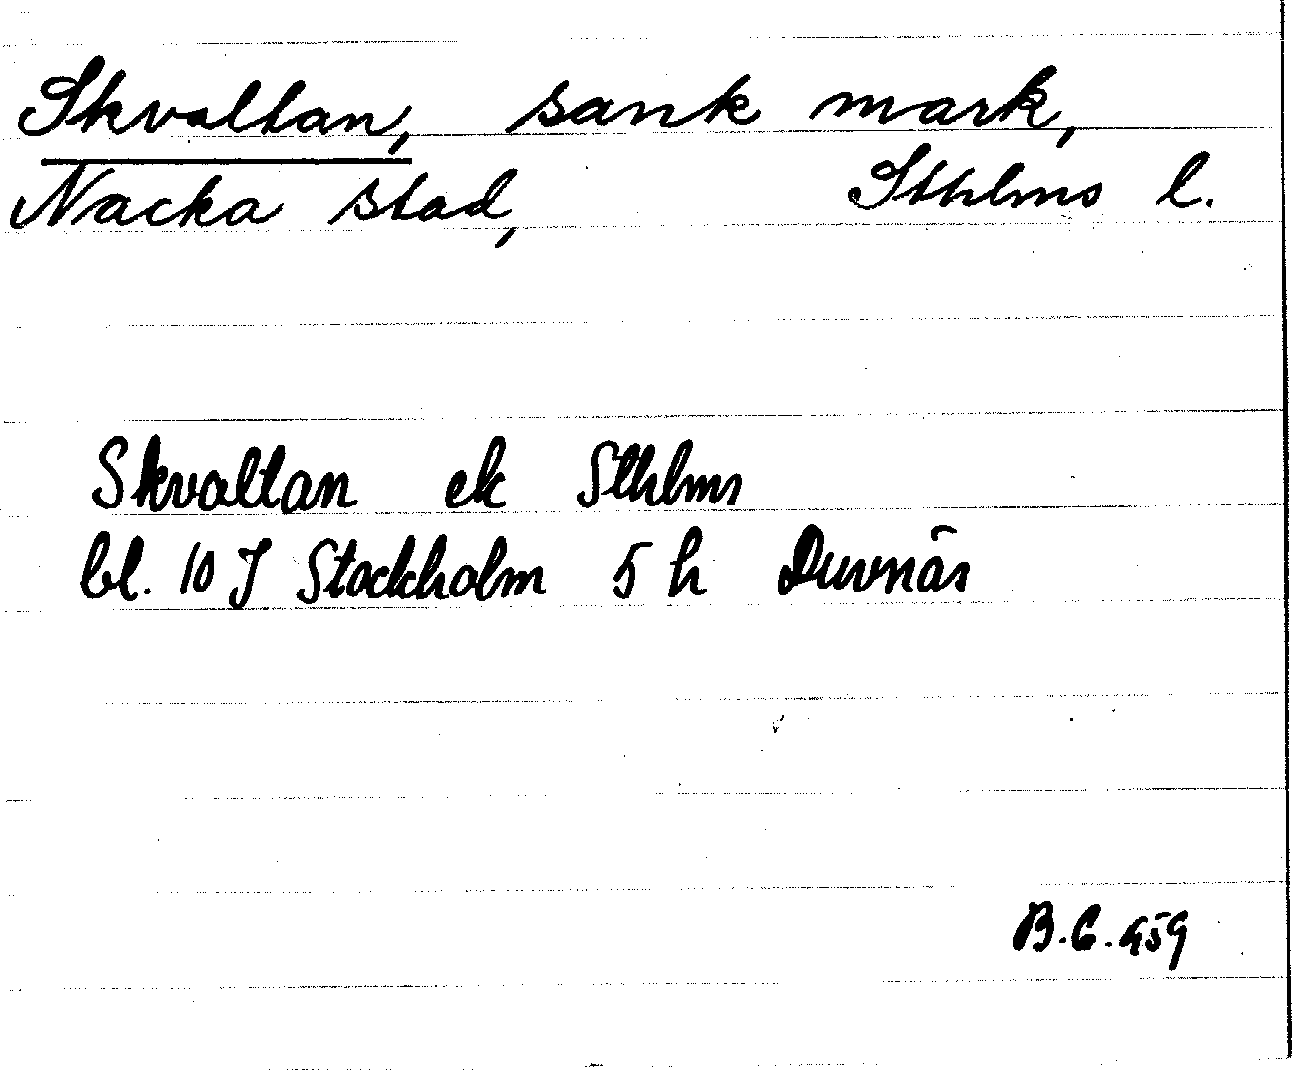 Skvaltan, sank mark,
Nacka stad, Sthlms l.
Skvaltan ek Sthlms
bl. 10 J Stockholm 5 h Duvnäs
B.C. 959